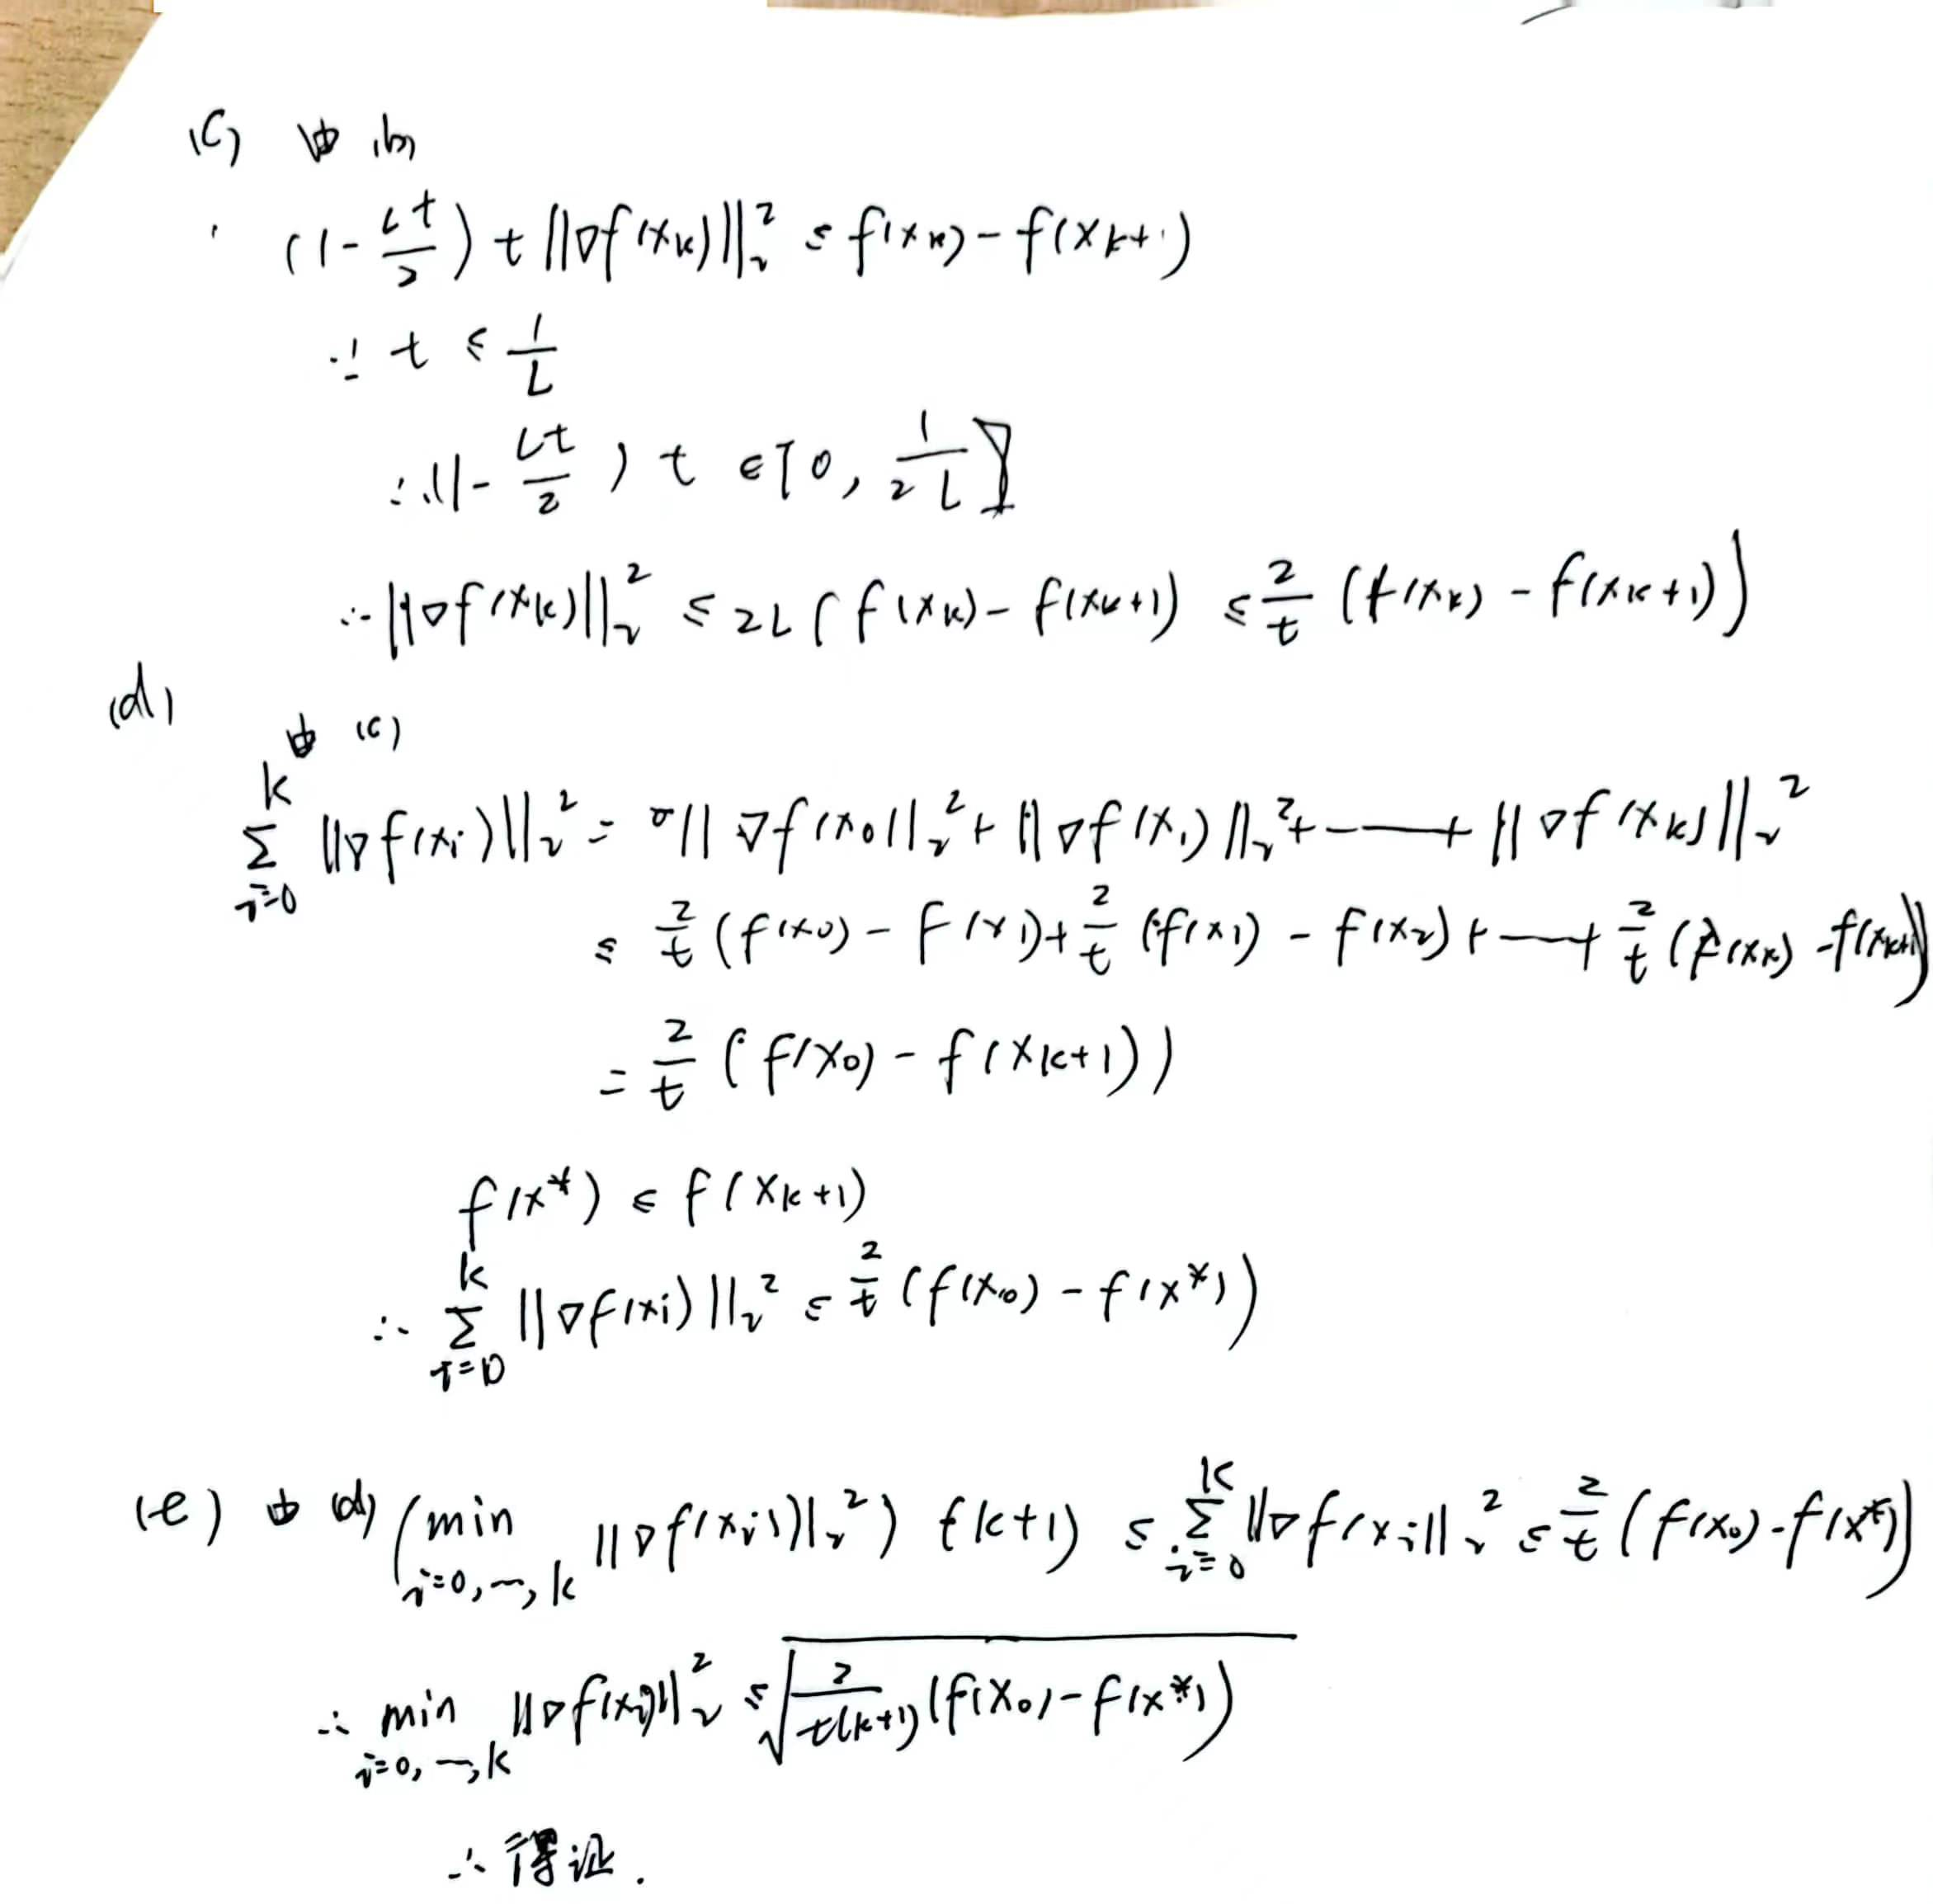 (c) 由 (b)
(1-\frac{Lt}{2}) t ||∇f(x_k)||_2^2 ≤ f(x_k) - f(x_{k+1})
∵ t ≤ \frac{1}{L}
∴ (1-\frac{Lt}{2}) t ∈ [0, \frac{1}{2L}]
∴ ||∇f(x_k)||_2^2 ≤ 2L (f(x_k) - f(x_{k+1})) ≤ \frac{2}{t} (f(x_k) - f(x_{k+1}))
(d)
由 (c)
\sum_{i=0}^{k} ||∇f(x_i)||_2^2 = ||∇f(x_0)||_2^2 + ||∇f(x_1)||_2^2 + —— + ||∇f(x_k)||_2^2
≤ \frac{2}{t} (f(x_0) - f(x_1)) + \frac{2}{t} (f(x_1) - f(x_2)) + —— + \frac{2}{t} (f(x_k) - f(x_{k+1}))
= \frac{2}{t} (f(x_0) - f(x_{k+1}))
f(x^*) ≤ f(x_{k+1})
∴ \sum_{i=0}^{k} ||∇f(x_i)||_2^2 ≤ \frac{2}{t} (f(x_0) - f(x^*))
(e) 由 (d) (min_{i=0,~,k} ||∇f(x_i)||_2^2) (k+1) ≤ \sum_{i=0}^{k} ||∇f(x_i)||_2^2 ≤ \frac{2}{t} (f(x_0) - f(x^*))
∴ min_{i=0,~,k} ||∇f(x_i)||_2^2 ≤ \sqrt{\frac{2}{t(k+1)} (f(x_0) - f(x^*))}
∴ 得证.